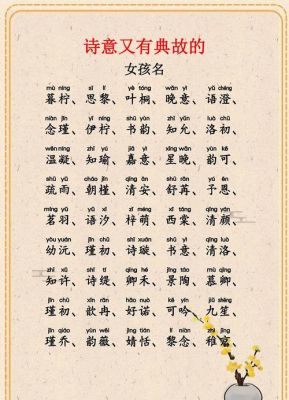 诗意又有典故的
女孩名
mù níng sī lí yè tóng wǎn yì yǔ chéng
暮柠、思黎、叶桐、晚意、语澄、
niàn jǐn yī níng shū yùn zhī yǔn luò chū
念瑾、伊柠、书韵、知允、洛初、
wēn níng zhī yú jiā yì xīng wǎn yùn kě
温凝、知瑜、嘉意、星晚、韵可、
shū yǔ qīng ān
疏雨、朝槿、清安、舒苒、子恩、
míng yǔ yǔ xī zǐ méng xī táng qīng yán
茗羽、语汐、梓萌、西棠、清颜、
yòu yuán jǐn chū shī xuán shū yì qīng luò
幼沅、瑾初、诗璇、书意、清洛、
zhī xǔ shī tí qīng hé jǐng táo mù qīng
知许、诗缇、卿禾、景陶、慕卿、
jǐn chū hǎo nuò kě yín jiǔ shēng
瑾初、歆冉、好诺、可吟、九笙、
jǐn qiáo yùn wēi jìng tián lí niàn
瑾乔、韵薇、婧恬、黎念、